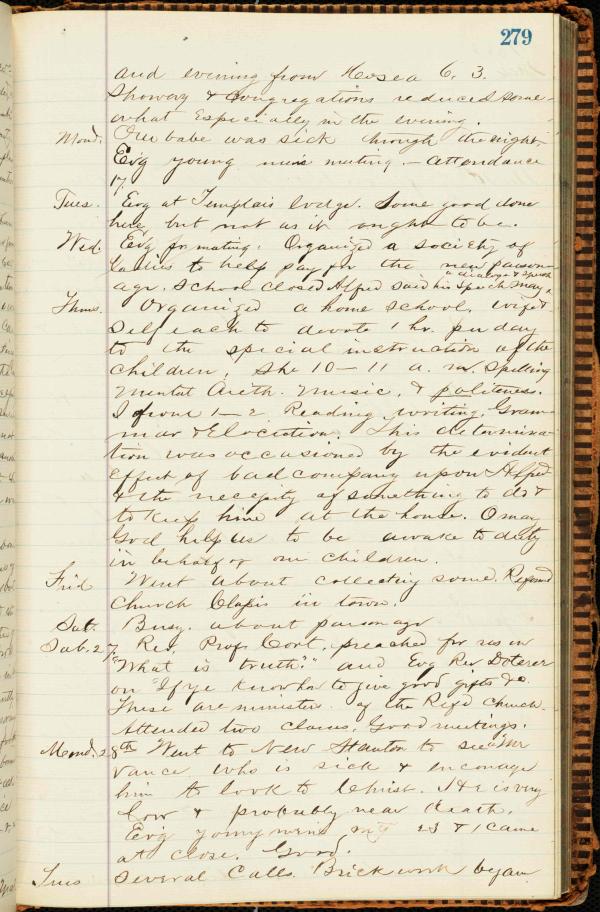 279
and evening from Hosea 6, 3.
Showery & Congregations reduced some-
what Especially in the evening.
Mond. Our babe was sick through the night.
Evg young men's meeting. – Attendance
17.
Tues. Evg at Templars lodge. Some good done
here, but not as it ought to be.
Wed. Evg pr. meeting. Organized a society of
ladies to help pay for the new parson-
age. School closed Alfred said his speech
"a dialogue & speech
Thurs. Organized a home school. wife &
Self each to devote 1 hr. per day
to the special instruction of the
children, she 10–11 a. m. Spelling
Mental Arith. Music, & politeness.
I from 1–2 Reading, writing, Gram-
mar & Elocution. This determina-
tion was occasioned by the evident
Effect of bad company upon Alfred
& the necessity of something to do &
to keep him at the house. O may
God help us to be awake to duty
in behalf of our children.
Frid Went about collecting some. Reformd
Church Classis in town.
Sat. Busy about parsonage
Sab. 27. Rev. Prof. Cort, preached for us on
"What is truth?" and Evg Rev Doterer
on "If ye know how to give good gifts &c.
These are ministers of the Refd Church.
Attended two classes, Good meetings.
Mond. 28th Went to New Stanton to see Mr
Vance who is sick & encourage
him to look to Christ. He is very
low & probably near death.
Evg young mens mtg 23 & 1 came
at close. Good.
Tues Several Calls. Brick work began